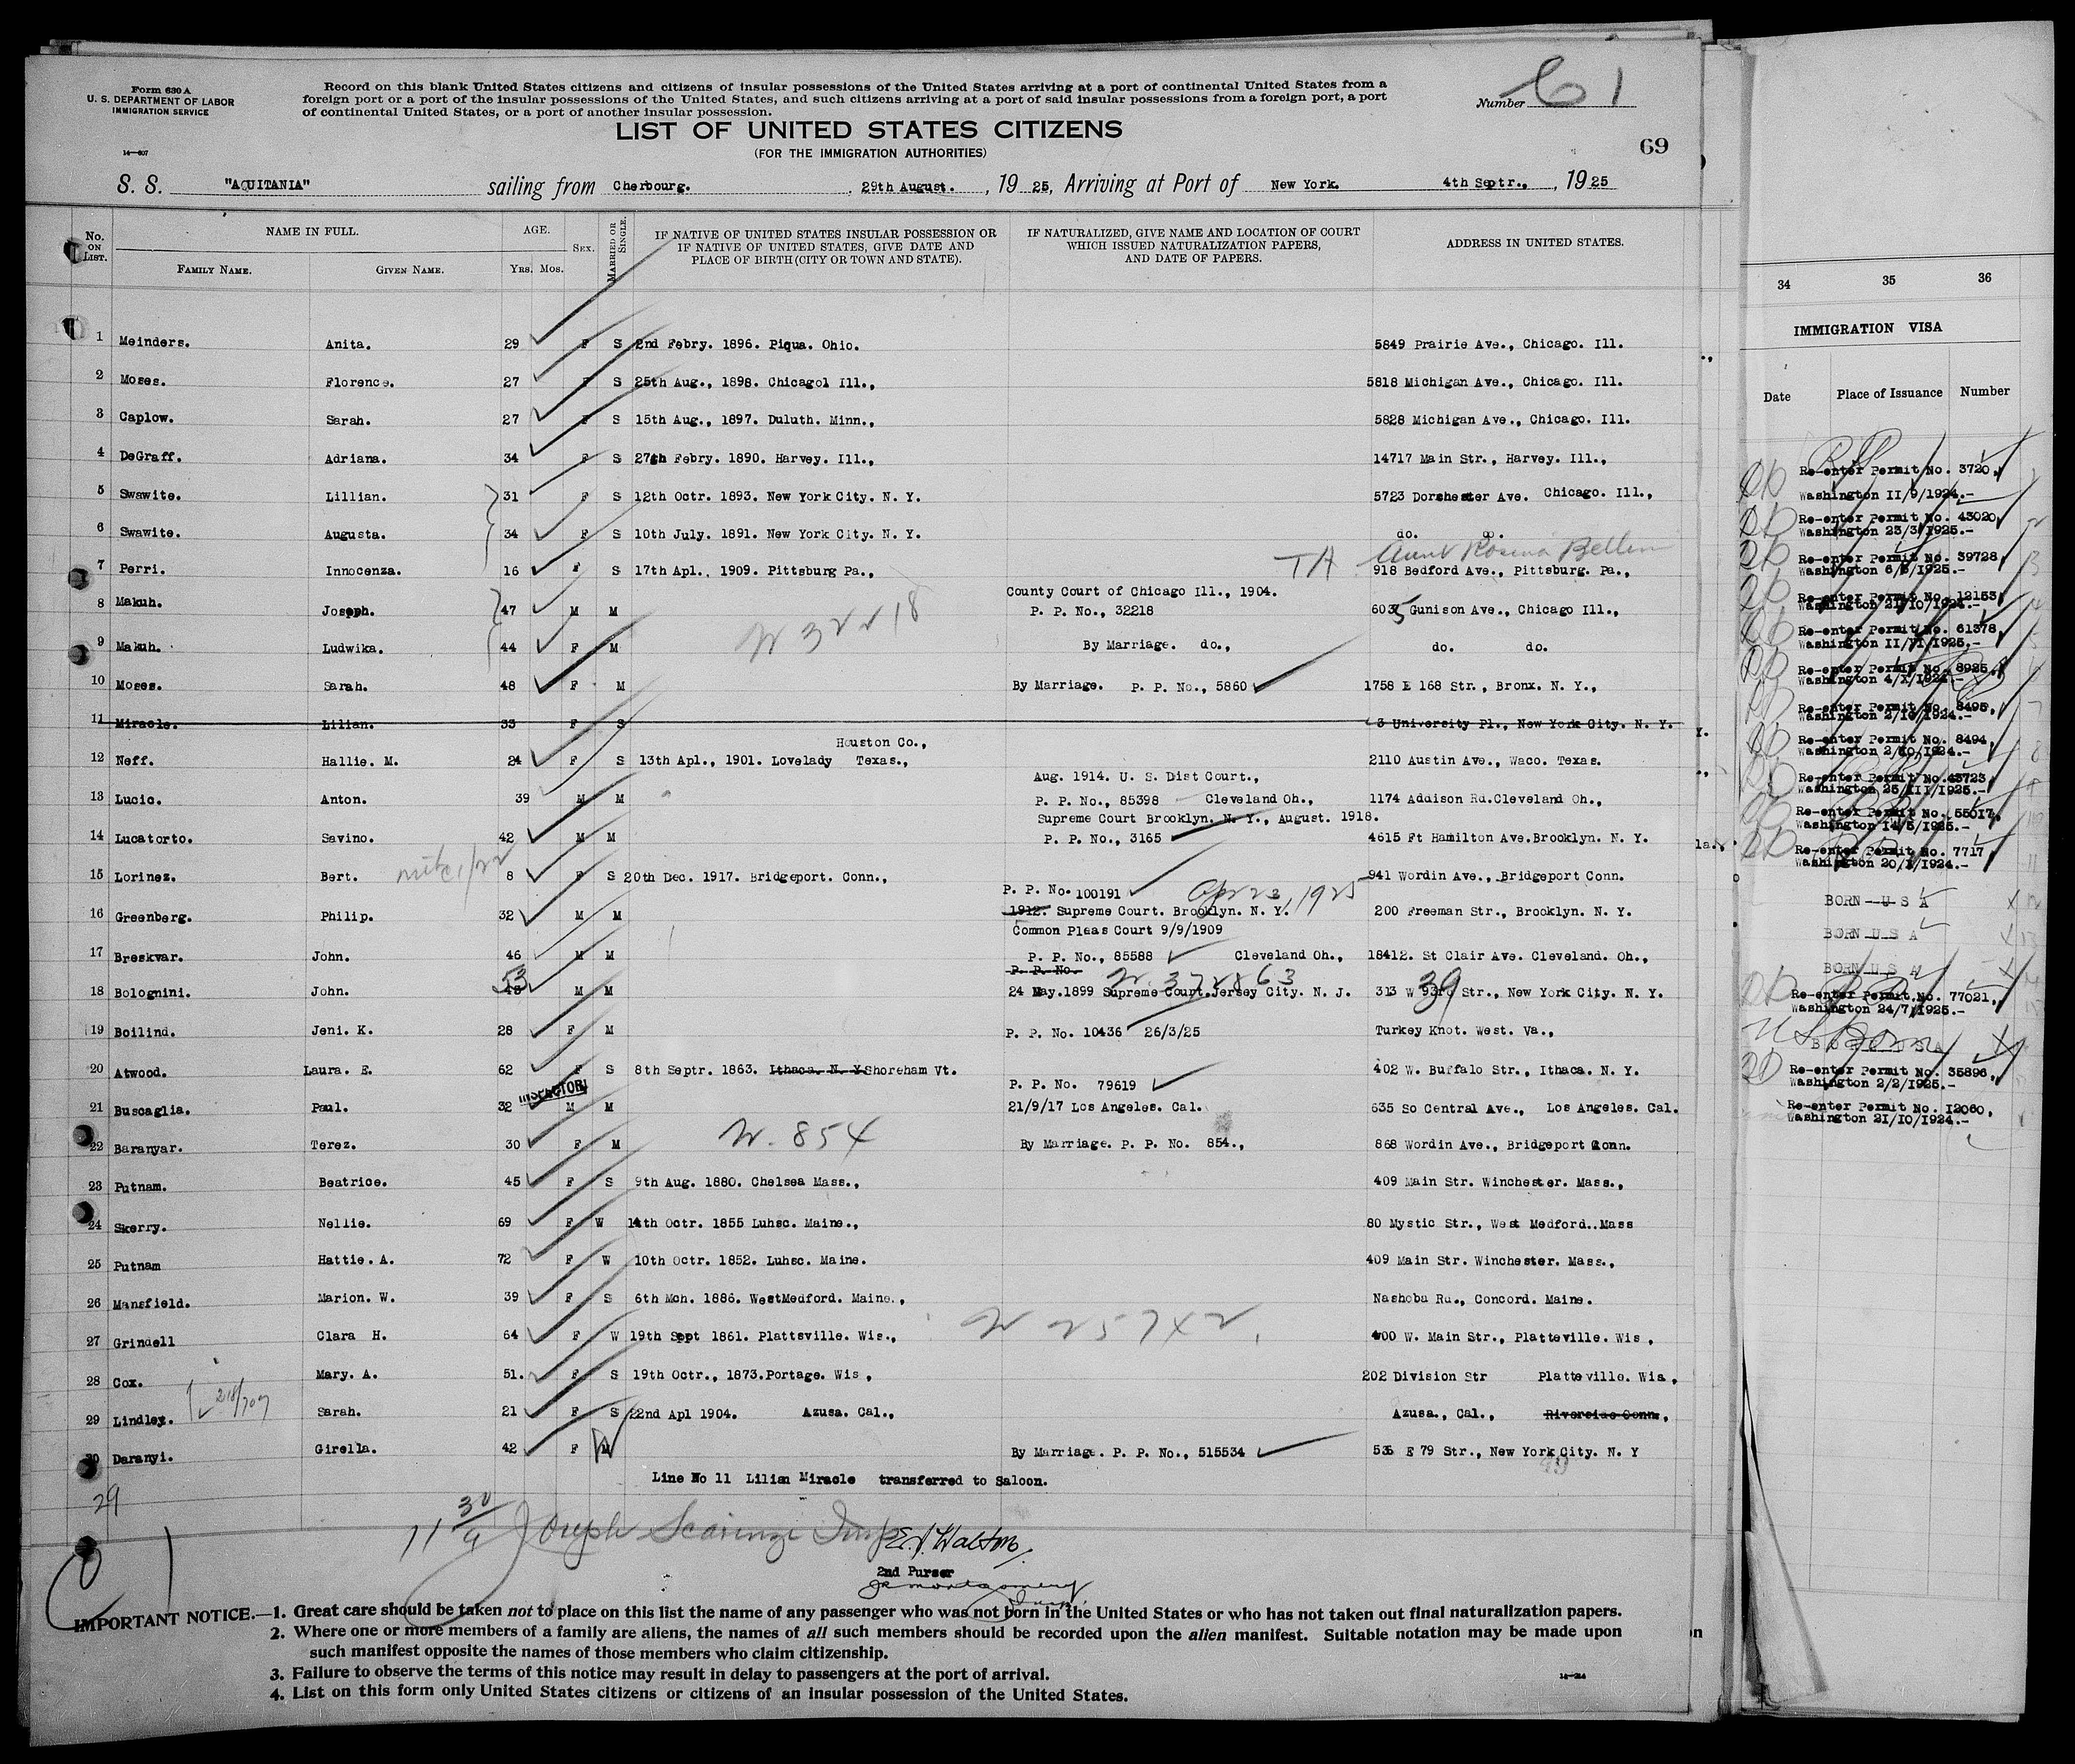 Form 630 A
U. S. DEPARTMENT OF LABOR
IMMIGRATION SERVICE
14—807
Record on this blank United States citizens and citizens of insular possessions of the United States arriving at a port of continental United States from a
foreign port or a port of the insular possessions of the United States, and such citizens arriving at a port of said insular possessions from a foreign port, a port
of continental United States, or a port of another insular possession.
Number 61
LIST OF UNITED STATES CITIZENS
(FOR THE IMMIGRATION AUTHORITIES)
69
S. S. "AQUITANIA" sailing from Cherbourg. , 29th August. , 19 25, Arriving at Port of New York. 4th Septr., , 19 25
No. ON LIST. NAME IN FULL. FAMILY NAME. GIVEN NAME. AGE. YRS. MOS. SEX. MARRIED OR SINGLE. IF NATIVE OF UNITED STATES INSULAR POSSESSION OR IF NATIVE OF UNITED STATES, GIVE DATE AND PLACE OF BIRTH (CITY OR TOWN AND STATE). IF NATURALIZED, GIVE NAME AND LOCATION OF COURT WHICH ISSUED NATURALIZATION PAPERS, AND DATE OF PAPERS. ADDRESS IN UNITED STATES.
1 Meinders. Anita. 29 F S 2nd Febry. 1896. Piqua. Ohio. 5849 Prairie Ave., Chicago. Ill.
2 Moses. Florence. 27 F S 25th Aug., 1898. Chicagol Ill., 5818 Michigan Ave., Chicago. Ill.
3 Caplow. Sarah. 27 F S 15th Aug., 1897. Duluth. Minn., 5828 Michigan Ave., Chicago. Ill.
4 DeGraff. Adriana. 34 F S 27th Febry. 1890. Harvey. Ill., 14717 Main Str., Harvey. Ill.,
5 Swawite. Lillian. 31 F S 12th Octr. 1893. New York City. N. Y. 5723 Dorchester Ave. Chicago. Ill.,
6 Swawite. Augusta. 34 F S 10th July. 1891. New York City. N. Y. do. do.
TH Aunt Rosina Bellin
7 Perri. Innocenza. 16 F S 17th Apl., 1909. Pittsburg Pa., 918 Bedford Ave., Pittsburg. Pa.,
County Court of Chicago Ill., 1904.
8 Makuh. Joseph. 47 M M N 32218 P. P. No., 32218 6035 Gunison Ave., Chicago Ill.,
9 Makuh. Ludwika. 44 F M By Marriage. do., do. do.
10 Moses. Sarah. 48 F M By Marriage. P. P. No., 5860 1758 E 168 Str., Bronx. N. Y.,
11 Miracle. Lilian. 33 F S 3 University Pl., New York City. N. Y.
Houston Co.,
12 Neff. Hallie. M. 24 F S 13th Apl., 1901. Lovelady Texas., 2110 Austin Ave., Waco. Texas.
Aug. 1914. U. S. Dist Court.,
13 Lucic. Anton. 39 M M P. P. No., 85398 Cleveland Oh., 1174 Addison Rd.Cleveland Oh.,
Supreme Court Brooklyn. N. Y., August. 1918.
14 Lucatorto. Savino. 42 M M P. P. No., 3165 4615 Ft Hamilton Ave.Brooklyn. N. Y.
15 Lorinez. Bert. 8 F S 20th Dec. 1917. Bridgeport. Conn., 941 Wordin Ave., Bridgeport Conn.
P. P. No. 100191 Apr 23, 1925
16 Greenberg. Philip. 32 M M 1912. Supreme Court. Brooklyn. N. Y. 200 Freeman Str., Brooklyn. N. Y.
Common Pleas Court 9/9/1909
17 Breskvar. John. 46 M M P. P. No., 85588 Cleveland Oh., 18412. St Clair Ave. Cleveland. Oh.,
P. P. No. N. 372863
18 Bolognini. John. 53 M M 24 May.1899 Supreme Court.Jersey City. N. J. 313 W 39 Str., New York City. N. Y.
19 Boilind. Jeni. K. 28 F M P. P. No. 10436 26/3/25 Turkey Knot. West. Va.,
20 Atwood. Laura. E. 62 F S 8th Septr. 1863. Ithaca. N. Y Shoreham Vt. 402 W. Buffalo Str., Ithaca. N. Y.
INSPECTOR
P. P. No. 79619
21 Buscaglia. Paul. 32 M M 21/9/17 Los Angeles. Cal. 635 So Central Ave., Los Angeles. Cal.
22 Baranyar. Terez. 30 F M N. 854 By Marriage. P. P. No. 854., 868 Wordin Ave., Bridgeport Conn.
23 Putnam. Beatrice. 45 F S 9th Aug. 1880. Chelsea Mass., 409 Main Str. Winchester. Mass.,
24 Skerry. Nellie. 69 F W 14th Octr. 1855 Luhsc. Maine., 80 Mystic Str., West Medford..Mass
25 Putnam Hattie. A. 72 F W 10th Octr. 1852. Luhsc. Maine. 409 Main Str. Winchester. Mass.,
26 Mansfield. Marion. W. 39 F S 6th Mch. 1886. WestMedford. Maine., Nashoba Rd., Concord. Maine.
N 25742
27 Grindell Clara H. 64 F W 19th Sept 1861. Plattsville. Wis., 400 W. Main Str., Platteville. Wis,
28 Cox. Mary. A. 51. F S 19th Octr., 1873.Portage. Wis, 202 Division Str Platteville. Wis,
29 Lindley. Sarah. 21 F S 22nd Apl 1904. Azusa. Cal., Azusa., Cal., Riverside Conn,
30 Daranyi. Girella. 42 F M By Marriage. P. P. No., 515534 536 E 79 Str., New York City. N. Y
Line No 11 Lilian Miracle transferred to Saloon.
29
11 30/4 Joseph Scarinzi Insp E. J. Walton
2nd Purser
JR Montgomery
Insp.
IMPORTANT NOTICE.—1. Great care should be taken not to place on this list the name of any passenger who was not born in the United States or who has not taken out final naturalization papers.
2. Where one or more members of a family are aliens, the names of all such members should be recorded upon the alien manifest. Suitable notation may be made upon
such manifest opposite the names of those members who claim citizenship.
3. Failure to observe the terms of this notice may result in delay to passengers at the port of arrival.
4. List on this form only United States citizens or citizens of an insular possession of the United States.
34 35 36
IMMIGRATION VISA
Date Place of Issuance Number
Re-enter Permit No. 3720,
Washington II/9/1924.-
Re-enter Permit No. 43020,
Washington 23/3/1925.-
Re-enter Permit No. 39728,
Washington 6/3/1925.-
Re-enter Permit No. 12153,
Washington 21/10/1924.-
Re-enter Permit No. 61378,
Washington II/VI/1925.-
Re-enter Permit No. 8925,
Washington 4/X/1924.-
Re-enter Permit No. 8495,
Washington 2/10/1924.-
Re-enter Permit No. 8494,
Washington 2/10/1924.-
Re-enter Permit No.43723,
Washington 25/III/1925.-
Re-enter Permit No. 55017,
Washington 14/5/1925.-
Re-enter Permit No. 7717,
Washington 20/X/1924.-
BORN--U S A
BORN U S A
BORN U S A
Re-enter Permit.No. 77021,
Washington 24/7/1925.-
US Born
BORN U S A
Re-enter Permit No. 35896,
Washington 2/2/1925.-
Re-enter Permit No. I2060,
Washington 21/IO/1924.-